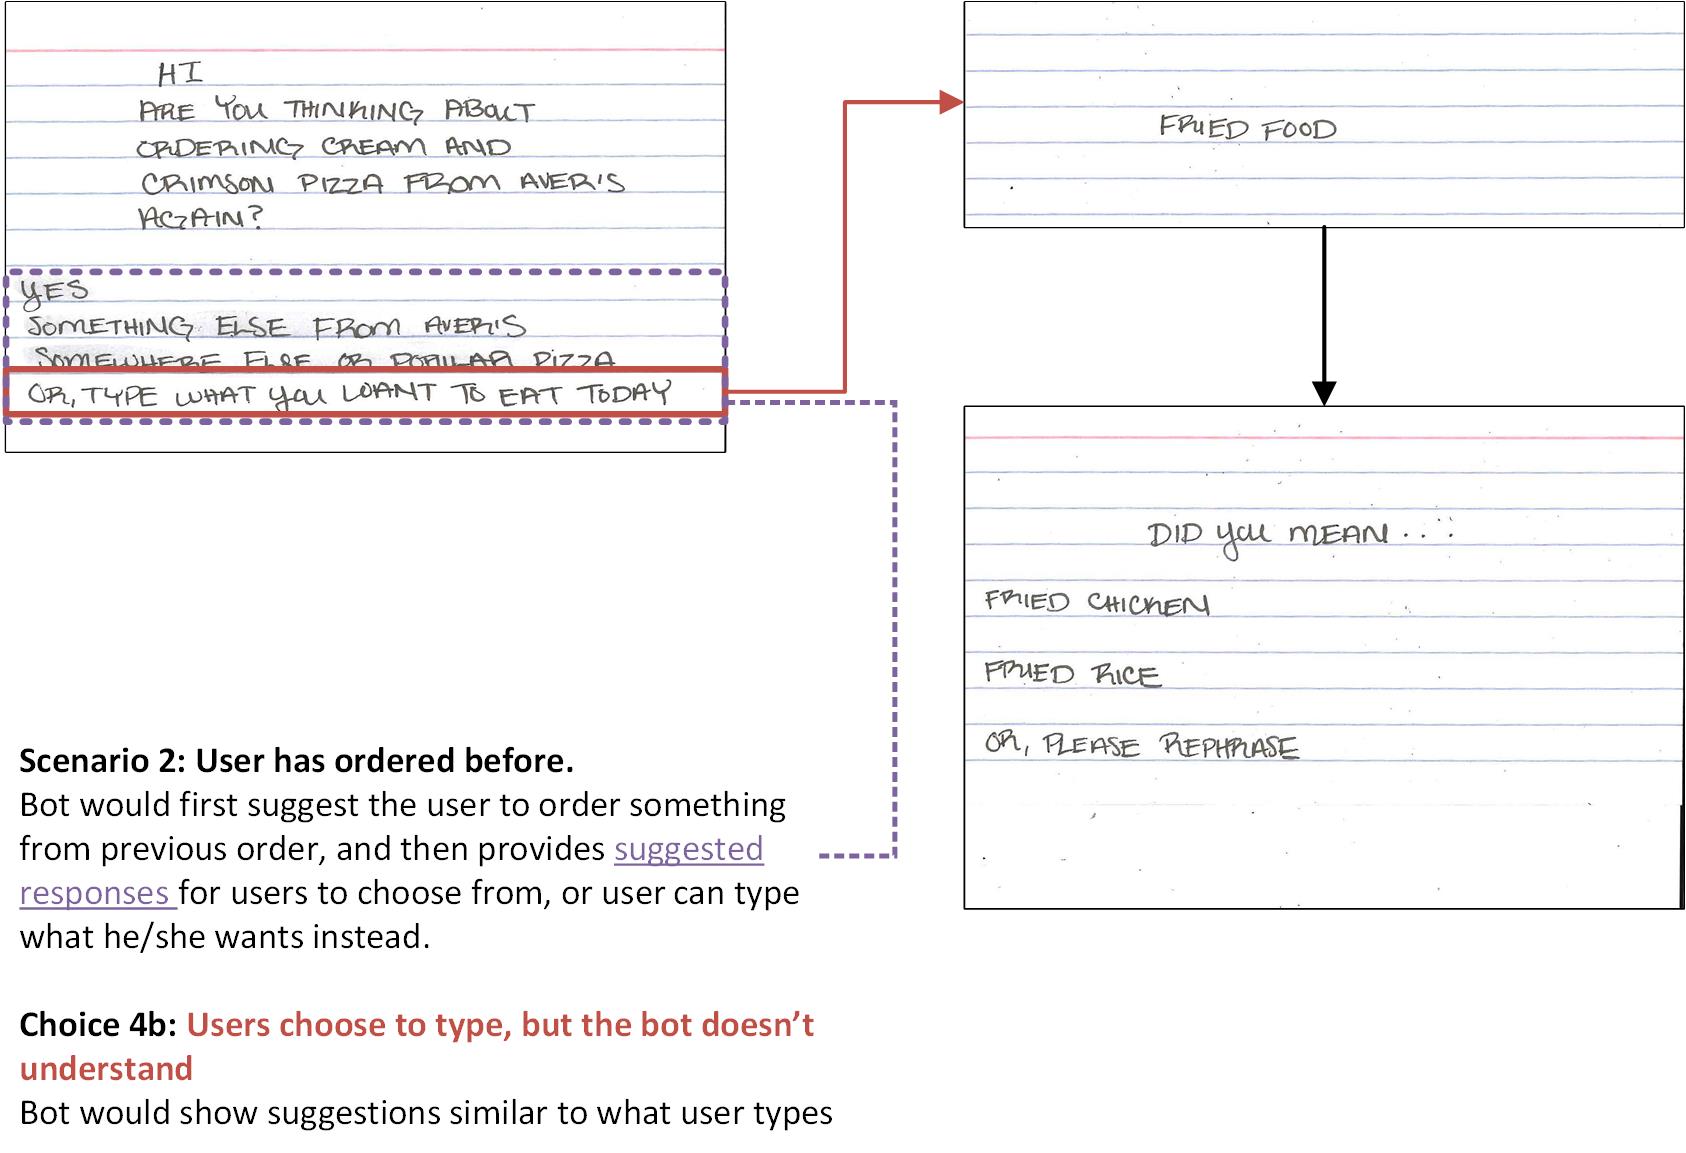 HI
ARE YOU THINKING ABOUT
ORDERING CREAM AND
CRIMSON PIZZA FROM AVER'S
AGAIN?
YES
SOMETHING ELSE FROM AVER'S
SOMEWHERE ELSE OR POPULAR PIZZA
OR, TYPE WHAT YOU WANT TO EAT TODAY
FRIED FOOD
DID YOU MEAN...
FRIED CHICKEN
FRIED RICE
OR, PLEASE REPHRASE
Scenario 2: User has ordered before.
Bot would first suggest the user to order something
from previous order, and then provides suggested
responses for users to choose from, or user can type
what he/she wants instead.
Choice 4b: Users choose to type, but the bot doesn’t
understand
Bot would show suggestions similar to what user types